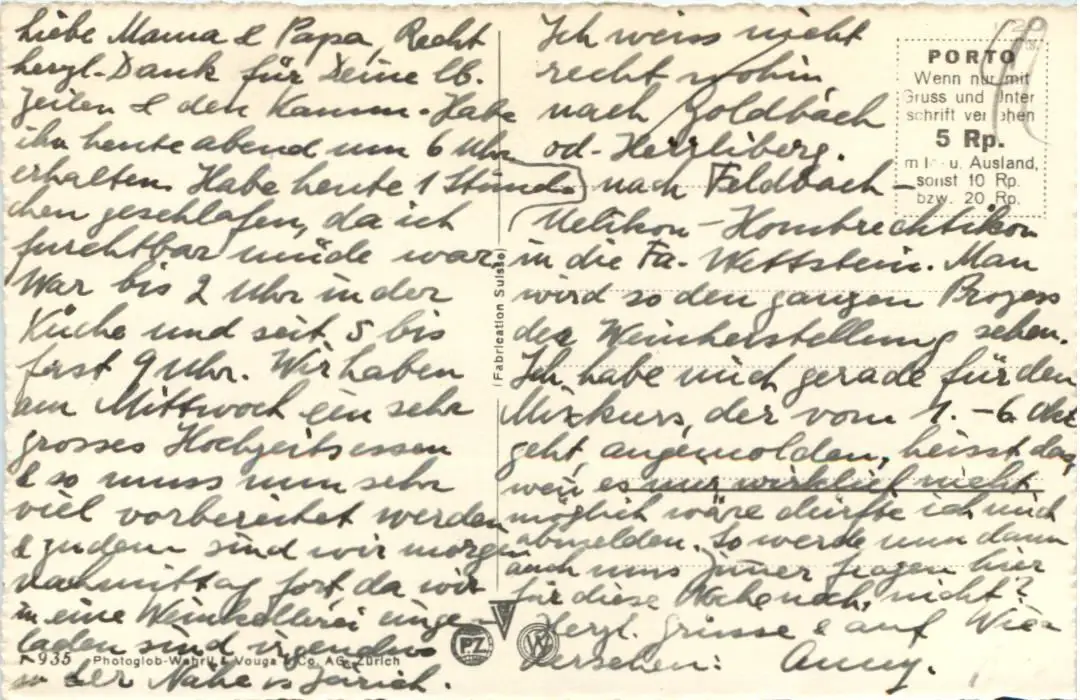 Liebe Mama & Papa, Recht
herzl. Dank für Deine lb.
Zeilen & den Kamm. Habe
ihn heute abend um 6 Uhr
erhalten. Habe heute 1 Stünd-
chen geschlafen, da ich
furchtbar müde war.
War bis 2 Uhr in der
Küche und seit 5 bis
fast 9 Uhr. Wir haben
am Mittwoch ein sehr
grosses Hochzeitsessen
& so muss nun sehr
viel vorbereitet werden
& zudem sind wir morgen
nachmittag fort, da wir
in eine Weinkellerei einge-
laden sind irgendwo
in der Nähe v. Zürich.
Ich weiss nicht
recht wohin
nach Goldbach
od. Herrliberg.
nach Feldbach -
Uetikon - Hombrechtikon
in die Fa. Wettstein. Man
wird so den ganzen Prozess
der Weinherstellung sehen.
Ich habe mich gerade für den
Mixkurs, der vom 1. - 6. Okt
geht angemolden, heisst das,
wenn es mir wirklich nicht
möglich wäre dürfte ich mich
abmelden. So werde nun dann
auch uns Jünger fragen hier
für diese Woche noch, nicht?
Herzl. Grüsse & auf Wie-
dersehen: Anny.
PORTO
Wenn nur mit
Gruss und Unter
schrift versehen
5 Rp.
m I. u. Ausland,
sonst 10 Rp.
bzw. 20 Rp.
(Fabrication Suisse)
PZ
W
935 Photoglob-Wehrli & Vouga & Co. AG. Zürich